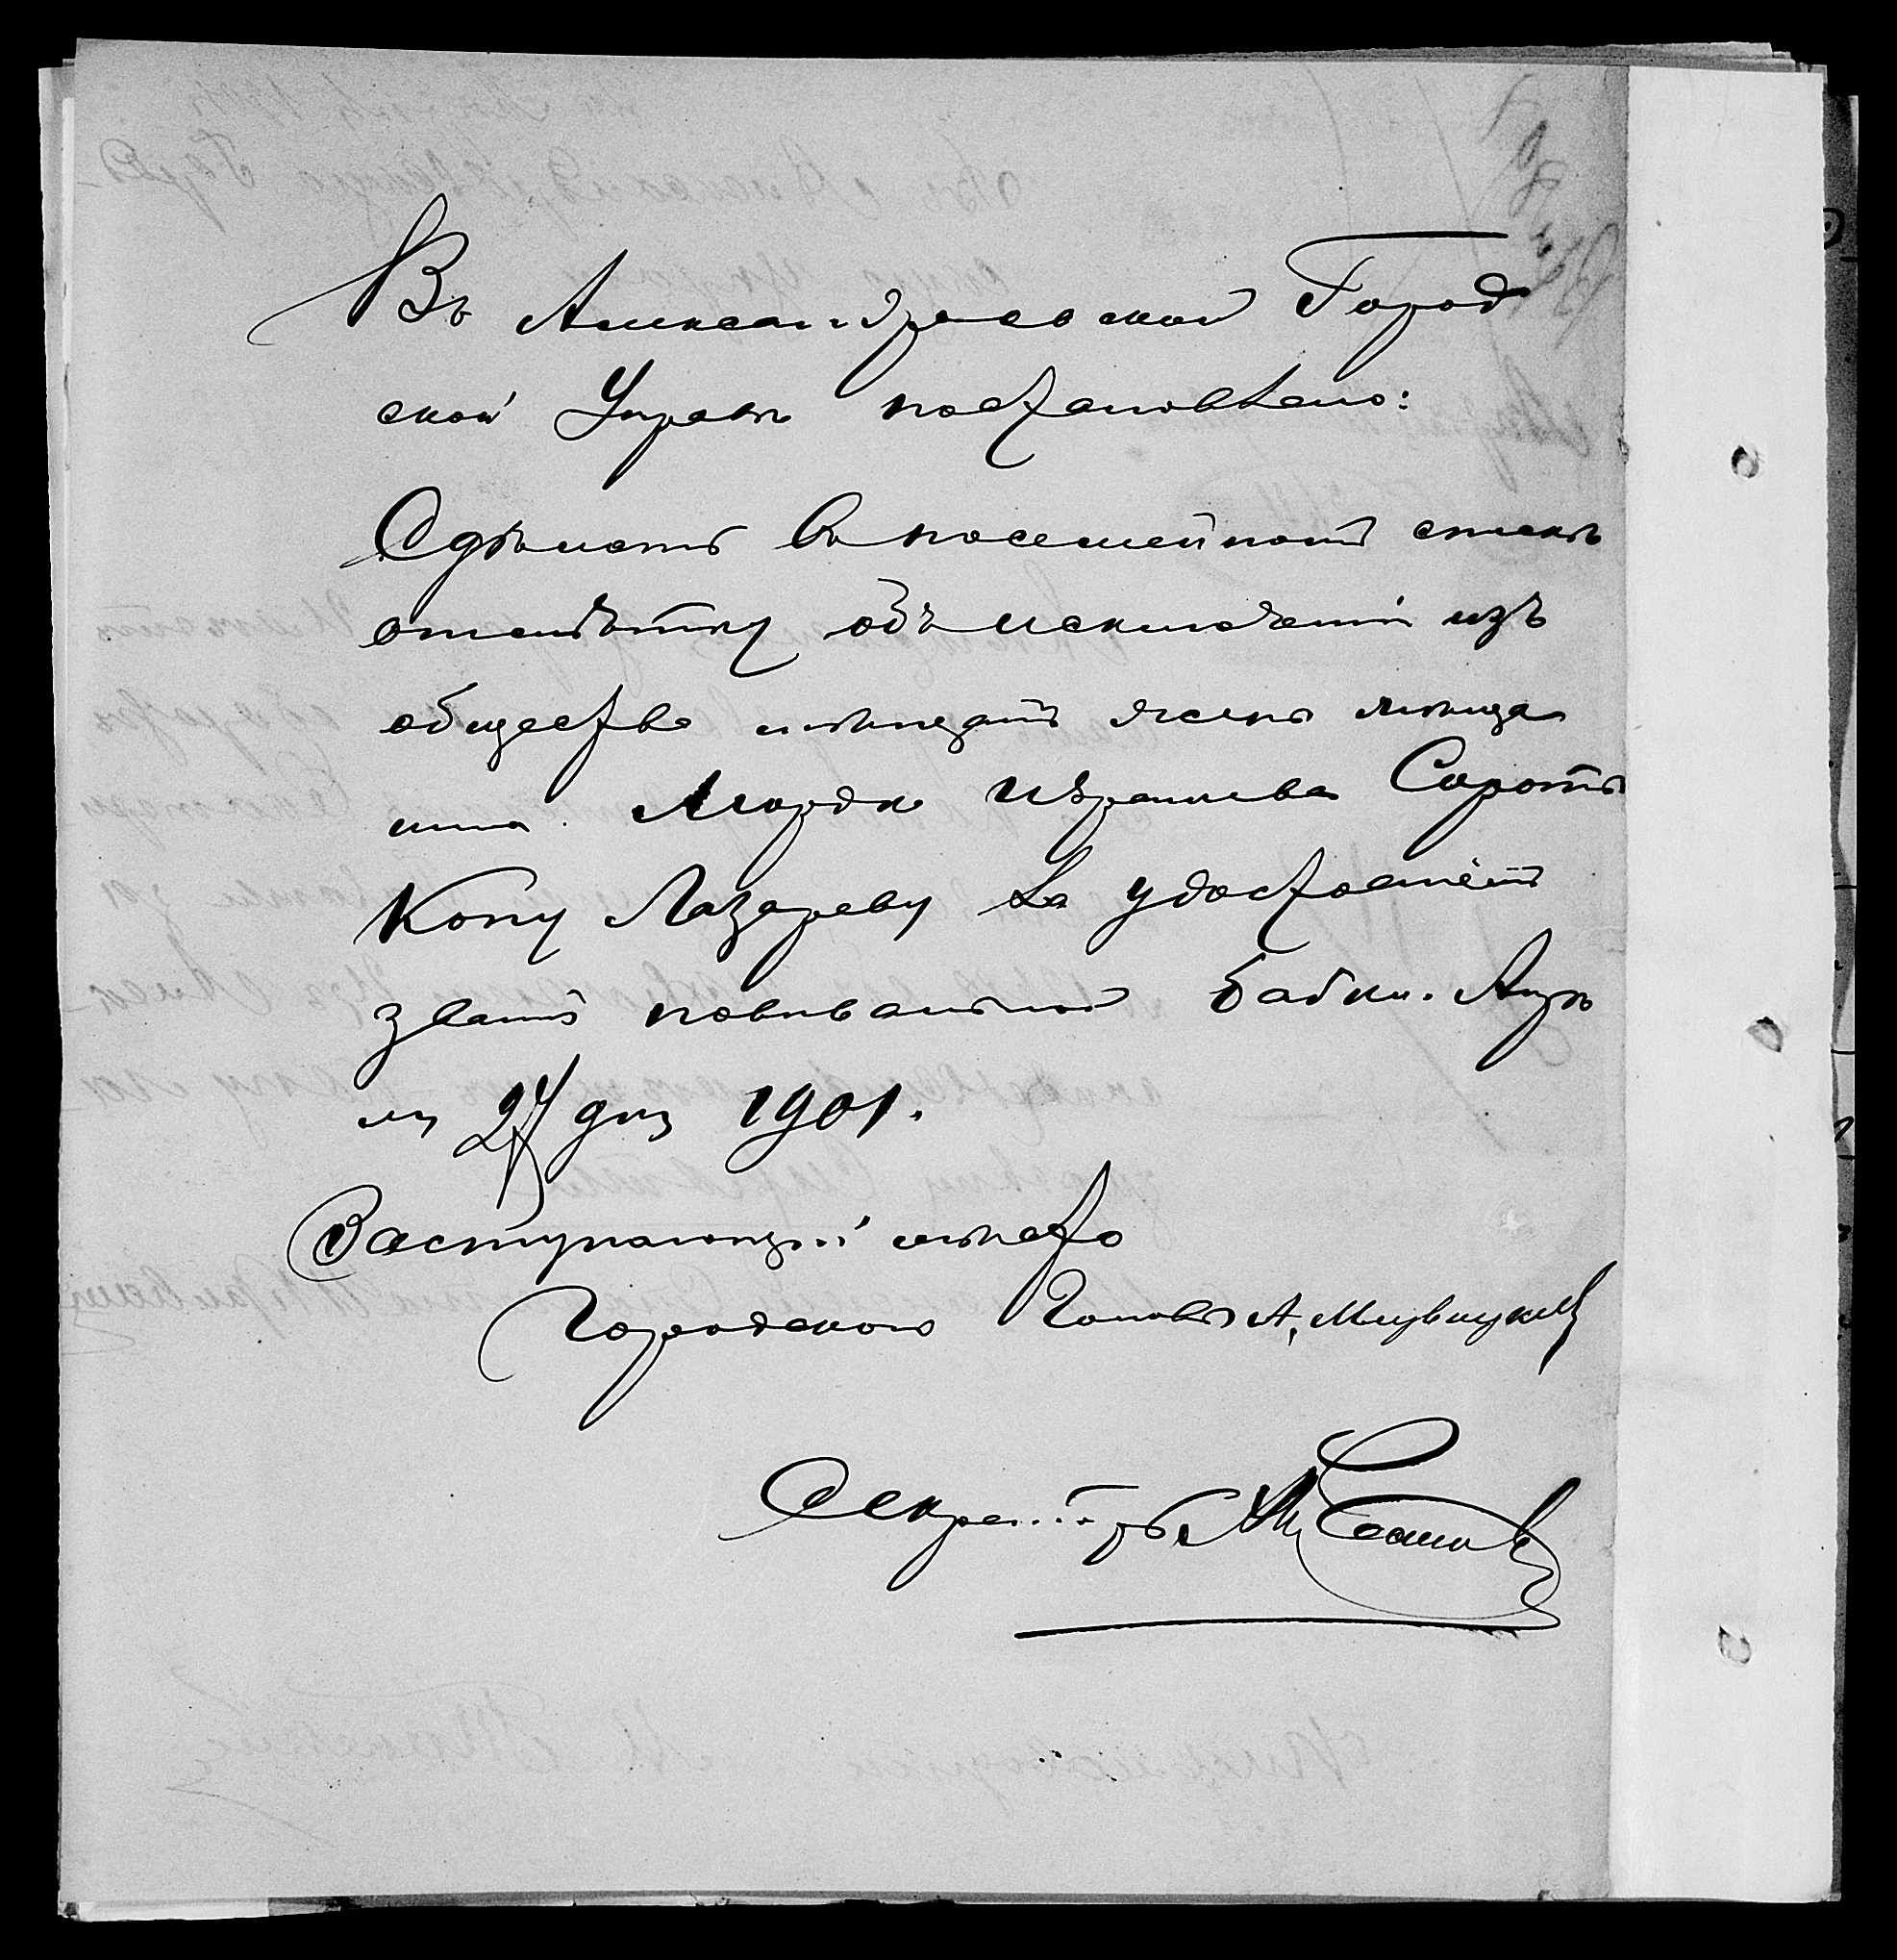 Въ Александровской Город
ской Управѣ постановлено:
Сдѣлать въ посемейномъ спискѣ
отмѣтку объ исключеніи изъ
общества мѣщанъ жены мѣща
нина Мордки Израилева Сорот
Копу Лазареву за удостоеніемъ
званія повивальной бабки. Апрѣ
ля 27 дня 1901.
Заступающій мѣсто
Городского Головы А.
Секретарь